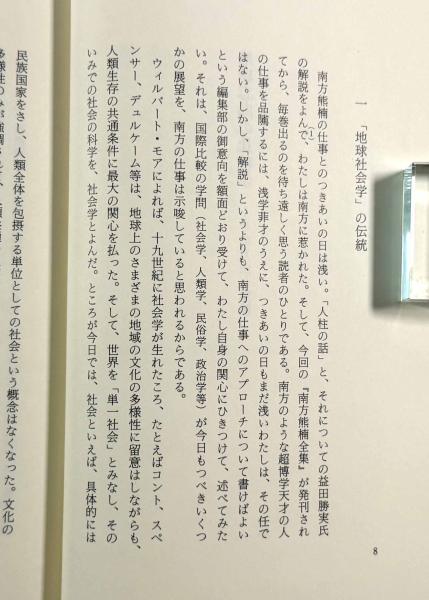 一 「地球社会学」の伝統
南方熊楠の仕事とのつきあいの日は浅い。「人柱の話」と、それについての益田勝実氏
の解説をよんで、わたしは南方に惹かれた。そして、今回の『南方熊楠全集』が発刊され
(1)
てから、毎巻出るのを待ち遠しく思う読者のひとりである。南方のような超博学天才の人
の仕事を品隲するには、浅学菲才のうえに、つきあいの日もまだ浅いわたしは、その任で
はない。しかし、「解説」というよりも、南方の仕事へのアプローチについて書けばよい
という編集部の御意向を額面どおり受けて、わたし自身の関心にひきつけて、述べてみた
い。それは、国際比較の学問(社会学、人類学、民俗学、政治学等)が今日もつべきいくつ
かの展望を、南方の仕事は示唆していると思われるからである。
ウィルバート・モアによれば、十九世紀に社会学が生れたころ、たとえばコント、スペ
ンサー、デュルケーム等は、地球上のさまざまの地域の文化の多様性に留意はしながらも、
人類生存の共通条件に最大の関心を払った。そして、世界を「単一社会」とみなし、その
いみでの社会の科学を、社会学とよんだ。ところが今日では、社会といえば、具体的には
8
民族国家をさし、人類全体を包摂する単位としての社会という概念はなくなった。文化の